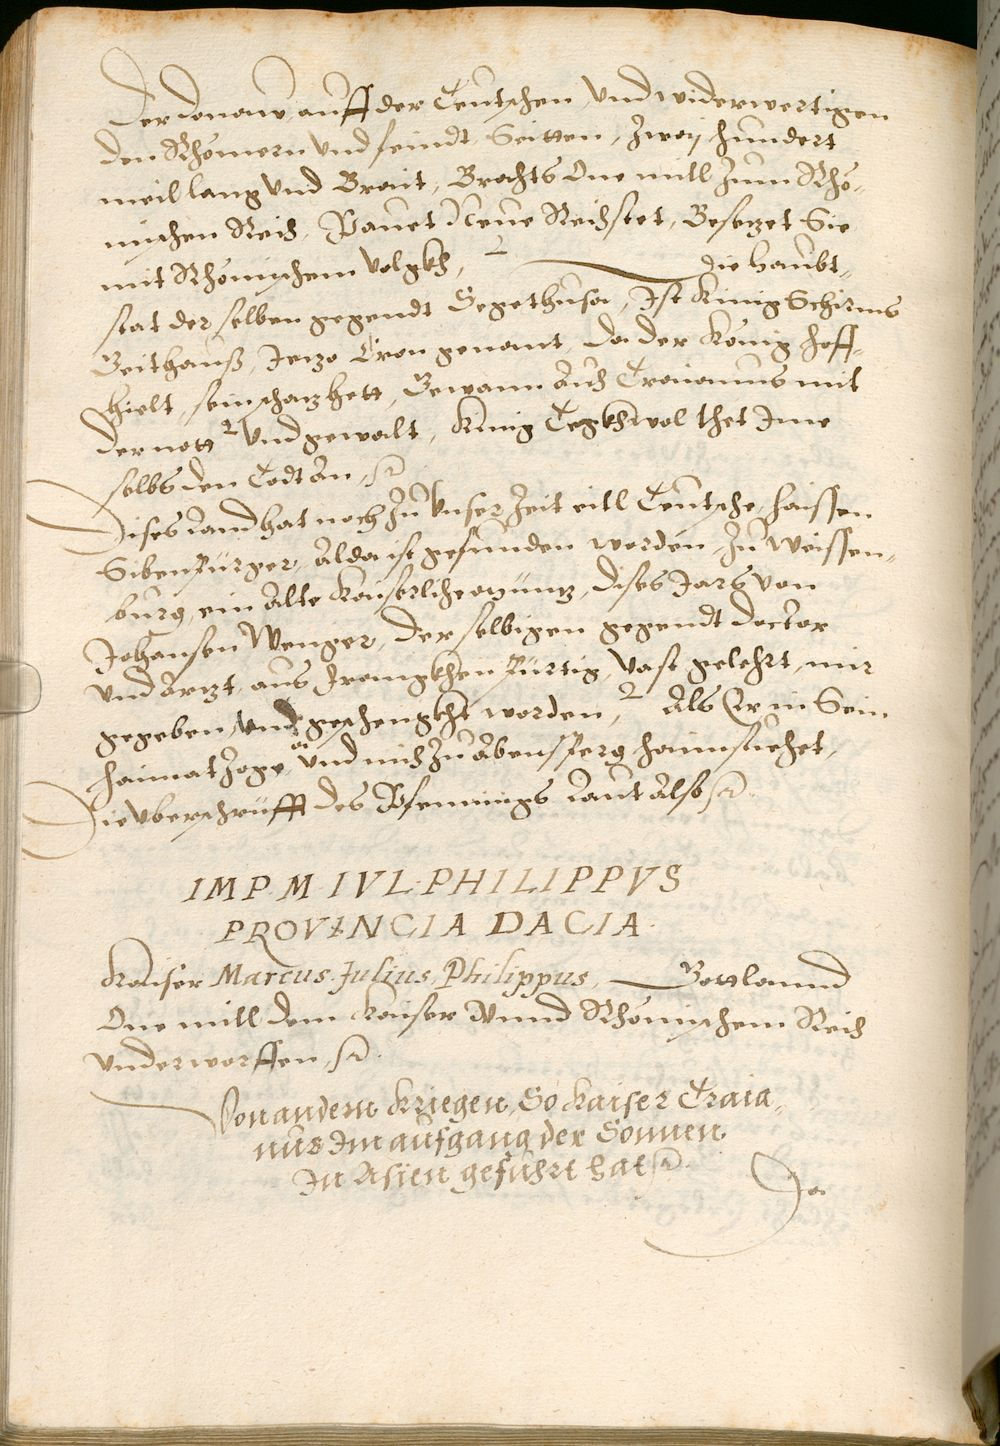 der Donaw auff der Teutschen Und widerwertigen
den Rhömern Und feindt Seitten, Zway hundert
meil lang Und Brait, Brachts One mitl Zum Rhö-
mischen Reich, Pauet Neue Reichstet, Besetzet Sie
mit Rhömischem Volgkh, die Haubt-
stat der selben gegendt Segethusa, Ist Künig Schirms
Beithauß, Jetzo Cron genant, Da der König hoff-
hielt, sein schatz hett, Gewann Auch Traianus mit
der nott Und gewalt, Künig Tegkhwol thet Ime
selbs den Todt An,
Dises Land hat noch Zu Unser Zeit eitl Teutsche, haissen
Sibenpürger, Alda ist gefunden worden, Zu Weissen-
burg, ein Alte Kaiserliche Müntz, dises Jars Von
Johansen Wenger, Der selbigen gegendt doctor
Und Artzt, aus Frangkhen pürtig, Vast gelehrt, mir
gegeben, Und geschengkht worden, Als Er in Sein
haimat Zoge, Und mich Zu Abensperg haimsuchet,
Die Uberschrüfft des Pfennings Laut Also
IMP. M. IVL. PHILIPPVS
PROVINCIA DACIA.
Kaiser Marcus. Julius. Philippus, Gottlannd
One mitl dem Kaiser Unnd Rhömischem Reich
Underworffen,
Von andern Kriegen, So Kaiser Traia-
nus Im aufgang der Sonnen
In Asien gefürht hat
Da